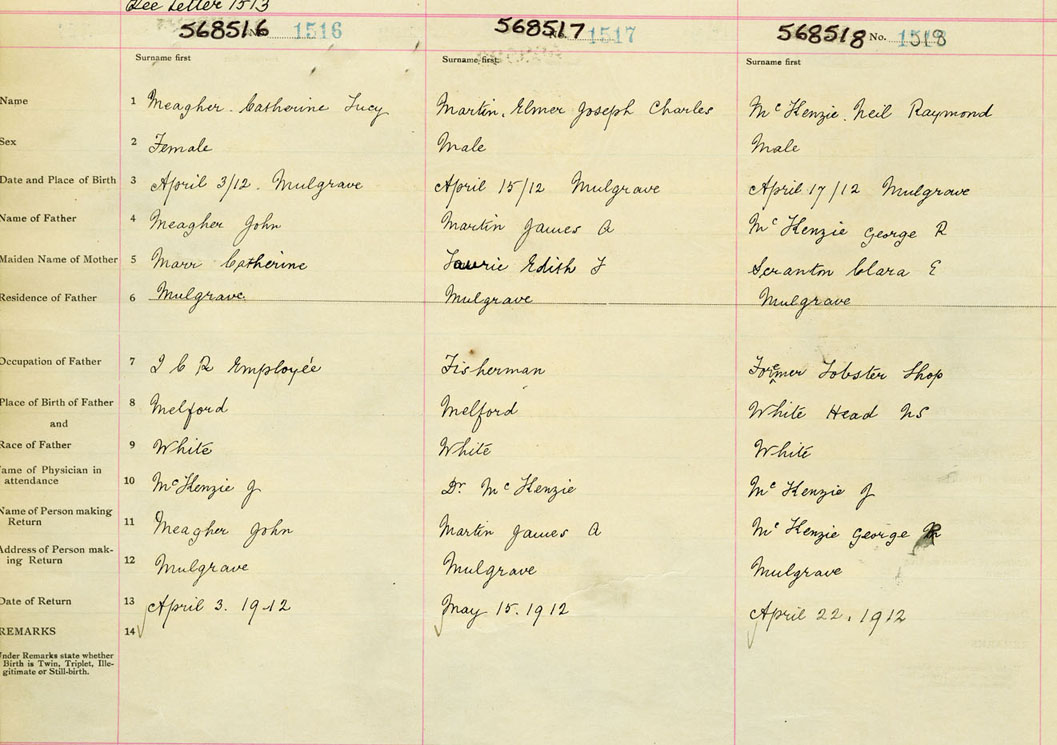 See Letter 1513
568516 No. 1516 568517 No. 1517 568518 No. 1518
Surname first Surname first Surname first
Name 1 Meagher. Catherine Lucy Martin, Elmer Joseph Charles McKenzie. Neil Raymond
Sex 2 Female Male Male
Date and Place of Birth 3 April 3/12. Mulgrave April 15/12 Mulgrave April 17/12 Mulgrave
Name of Father 4 Meagher John Martin James A McKenzie George R
Maiden Name of Mother 5 Marr Catherine Laurie Edith L Scranton Clara E
Residence of Father 6 Mulgrave. Mulgrave Mulgrave
Occupation of Father 7 I C R Employée Fisherman Former Lobster Shop
Place of Birth of Father 8 Melford Melford White Head NS
and
Race of Father 9 White White White
Name of Physician in
attendance 10 McKenzie J Dr. McKenzie McKenzie J
Name of Person making
Return 11 Meagher John Martin James A McKenzie George R
Address of Person mak-
ing Return 12 Mulgrave Mulgrave Mulgrave
Date of Return 13 April 3. 1912 May 15. 1912 April 22. 1912
REMARKS 14
Under Remarks state whether
Birth is Twin, Triplet, Ille-
gitimate or Still-birth.